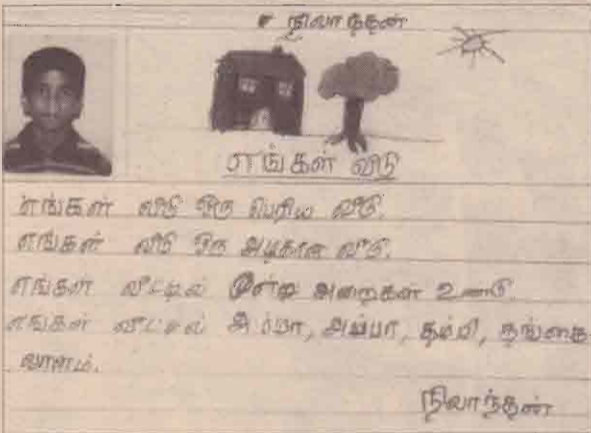 நிலாந்தன்
எங்கள் வீடு
எங்கள் வீடு ஒரு பெரிய வீடு.
எங்கள் வீடு ஒரு அழகான வீடு.
எங்கள் வீட்டில் மூன்று அறைகள் உண்டு.
எங்கள் வீட்டில் அம்மா, அப்பா, தம்பி, தங்கை
நிலாந்தன்